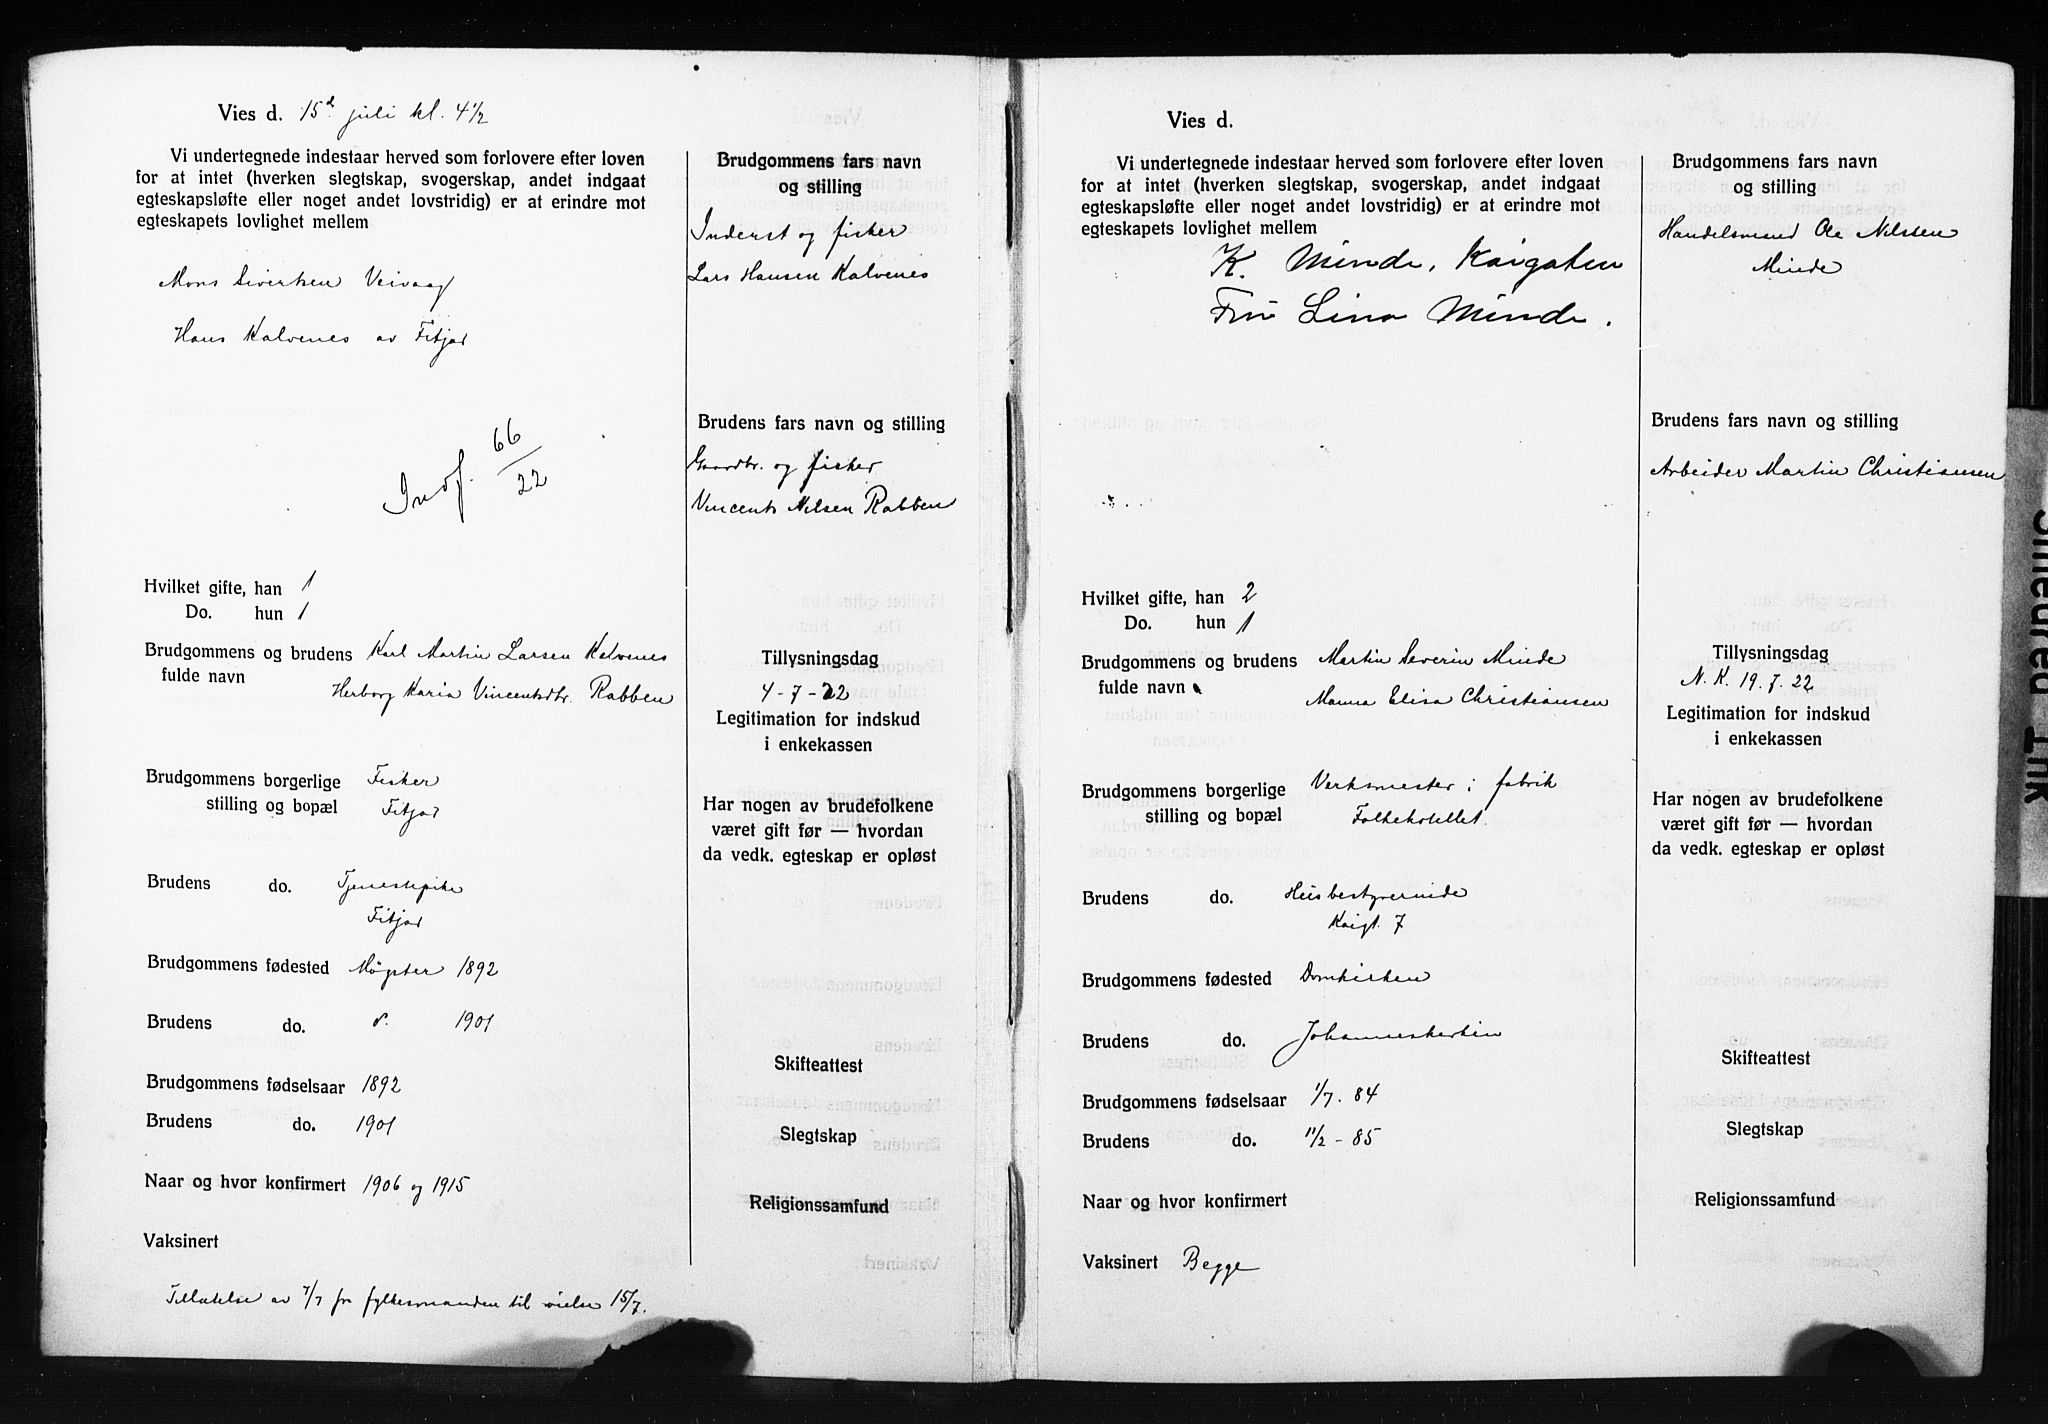 Vies d. 15d juli kl. 4½
Vi undertegnede indestaar herved som forlovere efter loven
for at intet (hverken slegtskap, svogerskap, andet indgaat
egteskapsløfte eller noget andet lovstridig) er at erindre mot
egteskapets lovlighet mellem
Mons Sivertsen Veivaag
Hans Kalvenes av Fitjar
Indf. 66/22
Hvilket gifte, han 1
Do. hun 1
Brudgommens og brudens Karl Martin Larsen Kalvenes
fulde navn Herborg Karia Vincentsdtr. Rabben
Brudgommens borgerlige Fisker
stilling og bopæl Fitjar
Brudens do. Tjenestepike
Fitjar
Brudgommens fødested Møgster 1892
Brudens do. d. 1901
Brudgommens fødselsaar 1892
Brudens do. 1901
Naar og hvor konfirmert 1906 og 1915
Vaksinert
Tillatelse av 7/7 fr fylkesmanden til vielse 15/7.
Brudgommens fars navn
og stilling
Inderst og fisker
Lars Hansen Kalvenes
Brudens fars navn og stilling
Gaardbr. og fisker
Vincents Nilsen Rabben
Tillysningsdag
4-7-22
Legitimation for indskud
i enkekassen
Har nogen av brudefolkene
været gift før — hvordan
da vedk. egteskap er opløst
Skifteattest
Slegtskap
Religionssamfund
Vies d.
Vi undertegnede indestaar herved som forlovere efter loven
for at intet (hverken slegtskap, svogerskap, andet indgaat
egteskapsløfte eller noget andet lovstridig) er at erindre mot
egteskapets lovlighet mellem
K. Minde, Kaigaten
Fru Lina Minde.
Hvilket gifte, han 2
Do. hun 1
Brudgommens og brudens Martin Severin Minde
fulde navn Manna Elisa Christiansen
Brudgommens borgerlige Verksmester i fabrik
stilling og bopæl Folkehotellet
Brudens do. Husbestyrerinde
Kaigt. 7
Brudgommens fødested Domkirken
Brudens do. Johanneskirken
Brudgommens fødselsaar 1/7. 84
Brudens do. 11/2 - 85
Naar og hvor konfirmert
Vaksinert Begge
Brudgommens fars navn
og stilling
Handelsmand Ole Nilsen
Minde
Brudens fars navn og stilling
Arbeider Martin Christiansen
Tillysningsdag
N. K. 19. 7. 22
Legitimation for indskud
i enkekassen
Har nogen av brudefolkene
været gift før — hvordan
da vedk. egteskap er opløst
Skifteattest
Slegtskap
Religionssamfund
Smeared Ink